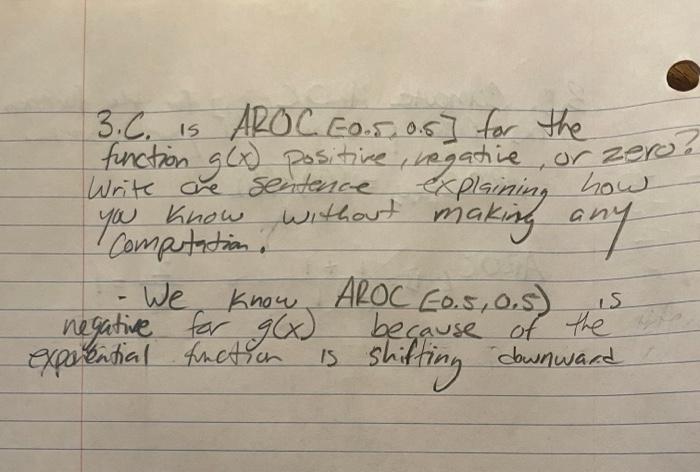 3.C. is AROC [-0.5, 0.5] for the
function g(x) positive, negative, or zero?
Write one sentence explaining how
you know without making any
computation.
- We know AROC [-0.5, 0.5) is
negative for g(x) because of the
exponential function is shifting downward